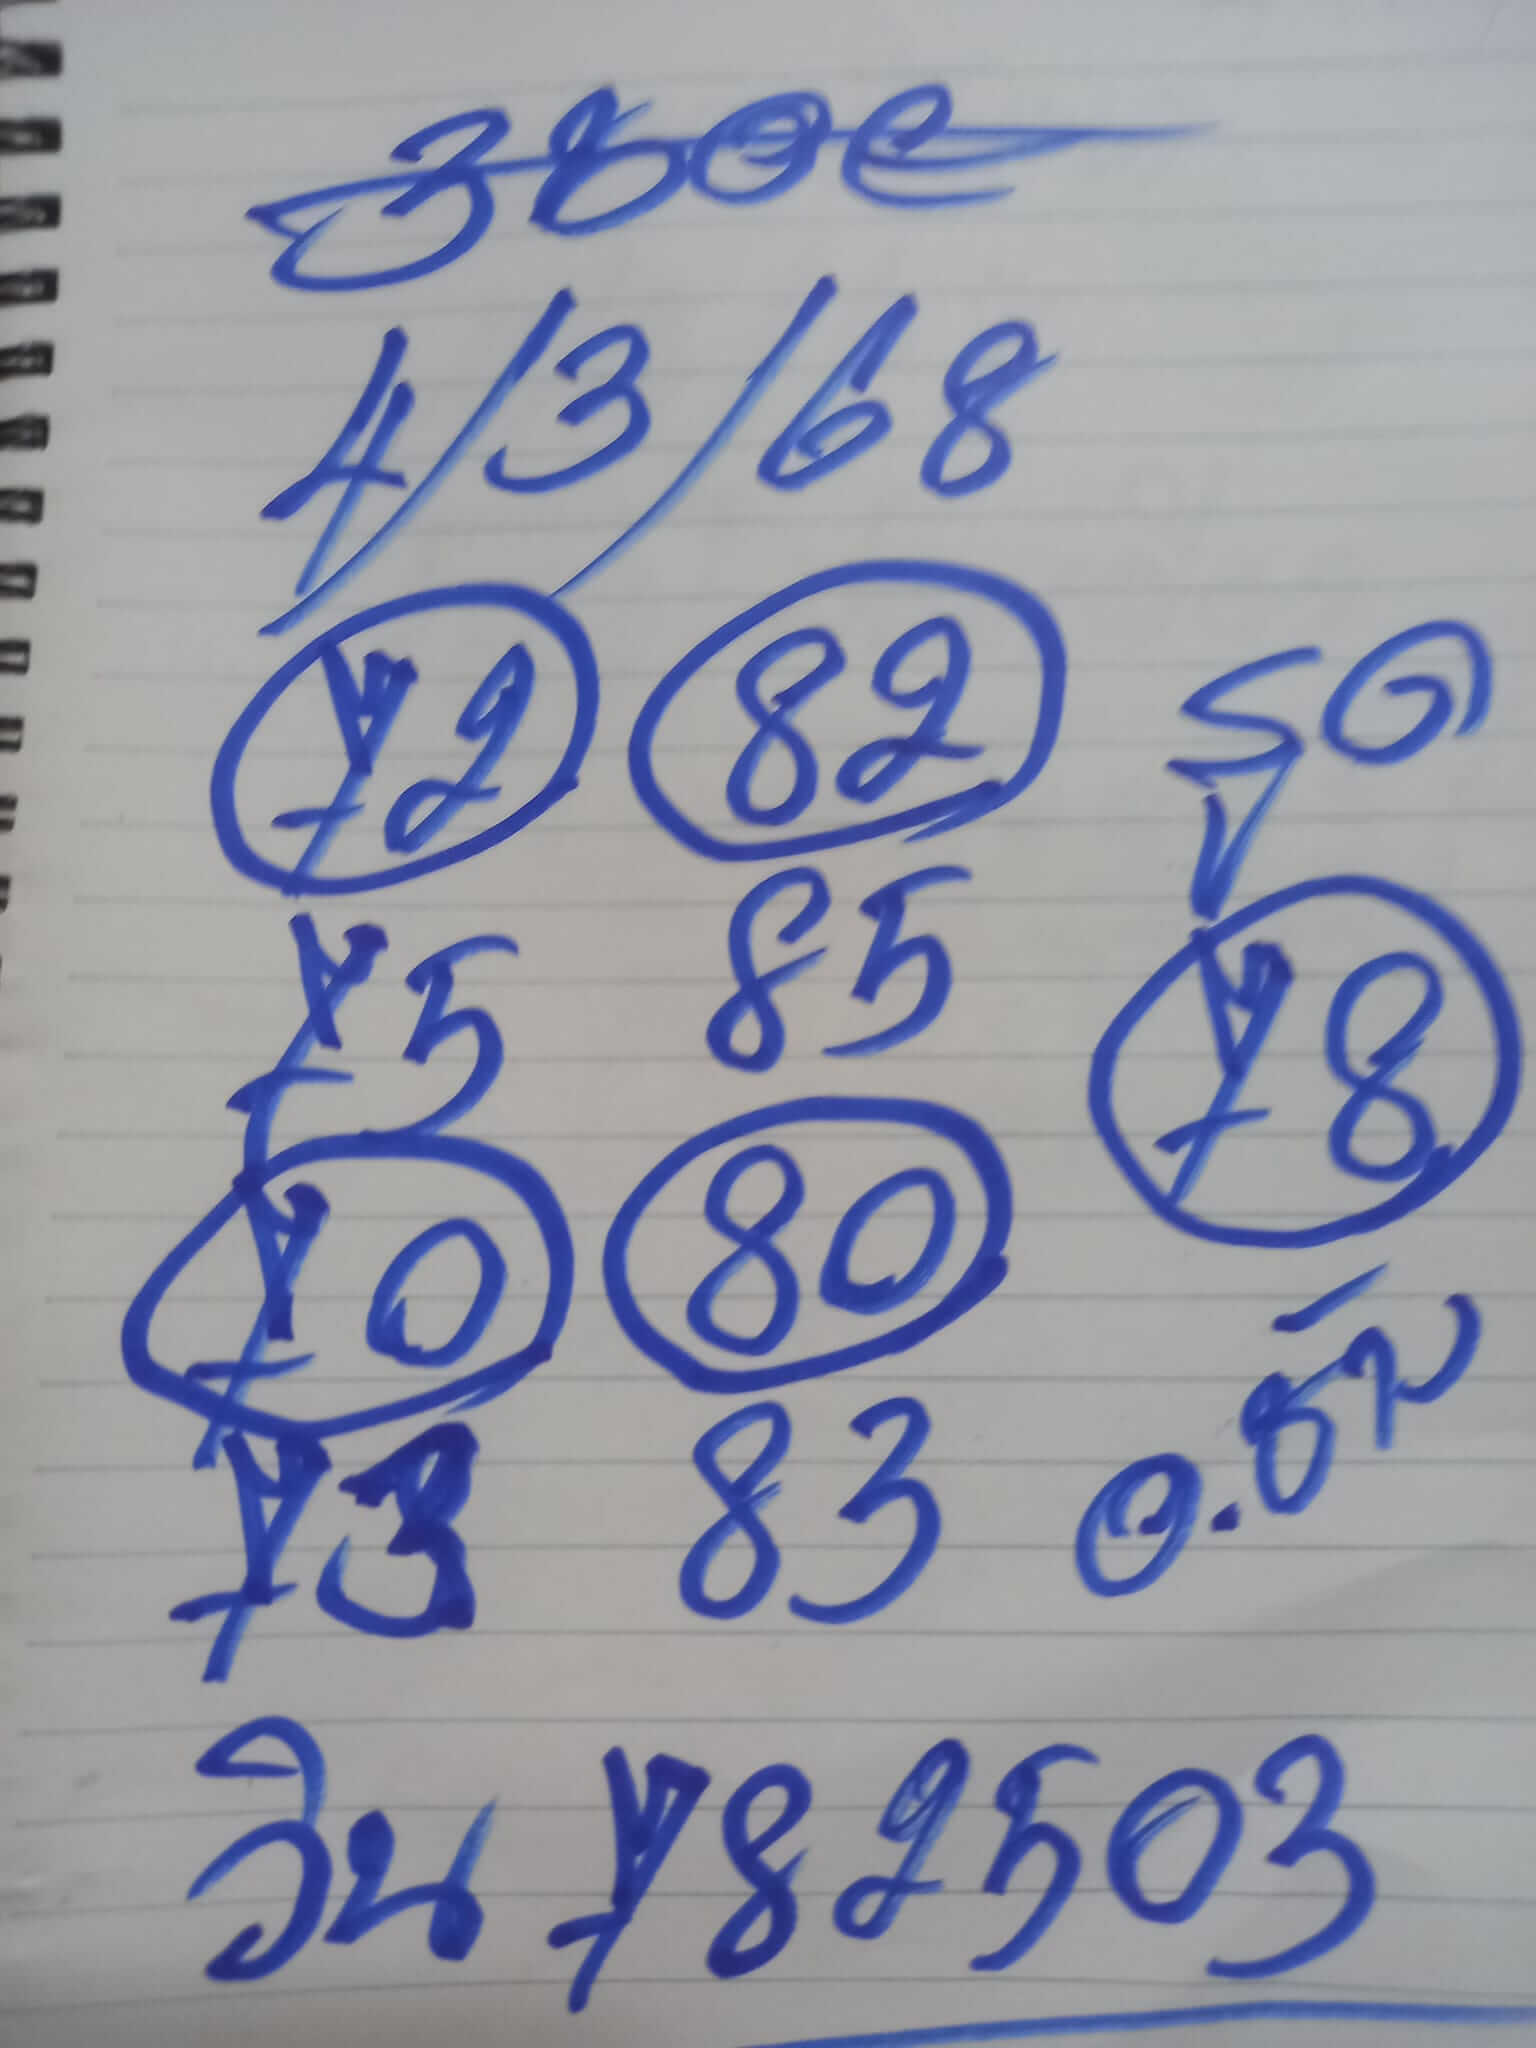 ฮานอย
4/3/68
72 82 รูด
75 85 78
70 80
73 83 อ.ชัย
วิน 782503